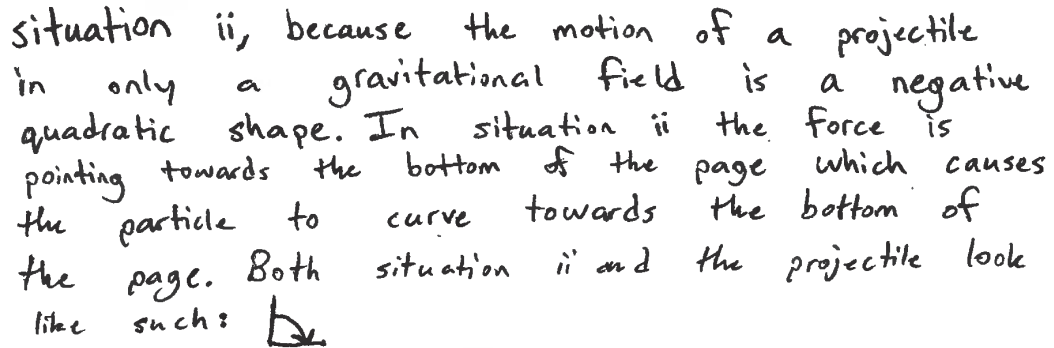 situation ii, because the motion of a projectile
in only a gravitational field is a negative
quadratic shape. In situation ii the force is
pointing towards the bottom of the page which causes
the particle to curve towards the bottom of
the page. Both situation ii and the projectile look
like such: